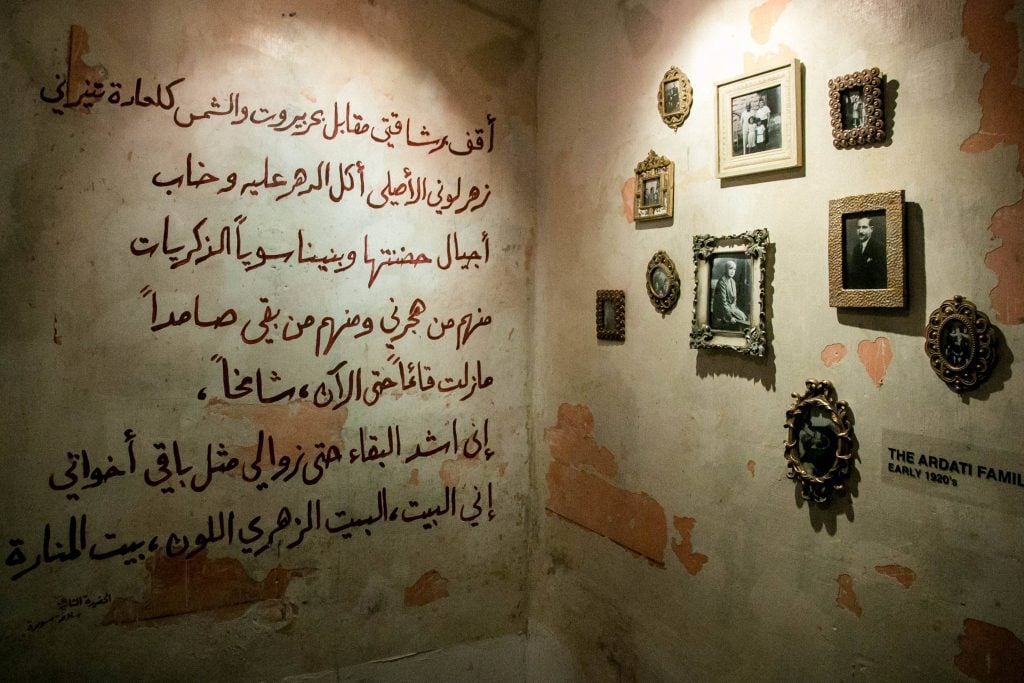 أقف برشاقتي مقابل بحر بيروت والشمس كلعارة تنيراني
زهر لوني الأصلي أكل الدهر عليه وخاب
أجيال حضنتها وبنينا سوياً الذكريات
منهم من هجرني ومنهم من بقي صامداً
مازلت قائماً حتى الآن، شامخاً،
إني اشد البقاء حتى زوالي مثل باقي أخواتي
إني البيت، البيت الزهري اللون، بيت المنارة
THE ARDATI FAMIL
EARLY 1920's